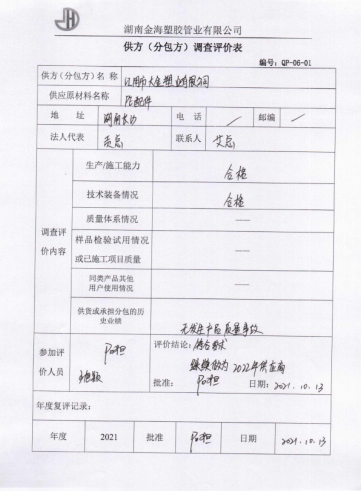 湖南金海塑胶管业有限公司
供方（分包方）调查评价表
编号：QP-06-01
供方（分包方）名 称 江阴市大金塑业有限公司
供应原材料名称 管配件
地 址 湖南长沙 电 话 / 邮编 /
法人代表 联系人 艾总
调查评价内容
生产/施工能力 合格
技术装备情况 合格
质量体系情况 ——
样品检验试用情况或已施工项目质量 ——
同类产品其他用户使用情况 ——
供货或承担分包的历史业绩 无发生产品质量事故
参加评价人员
评价结论：符合要求
继续做为2022年供应商
批准： 日期：2021.10.13
年度复评记录：
年度 2021 批准 日期 2021.10.13